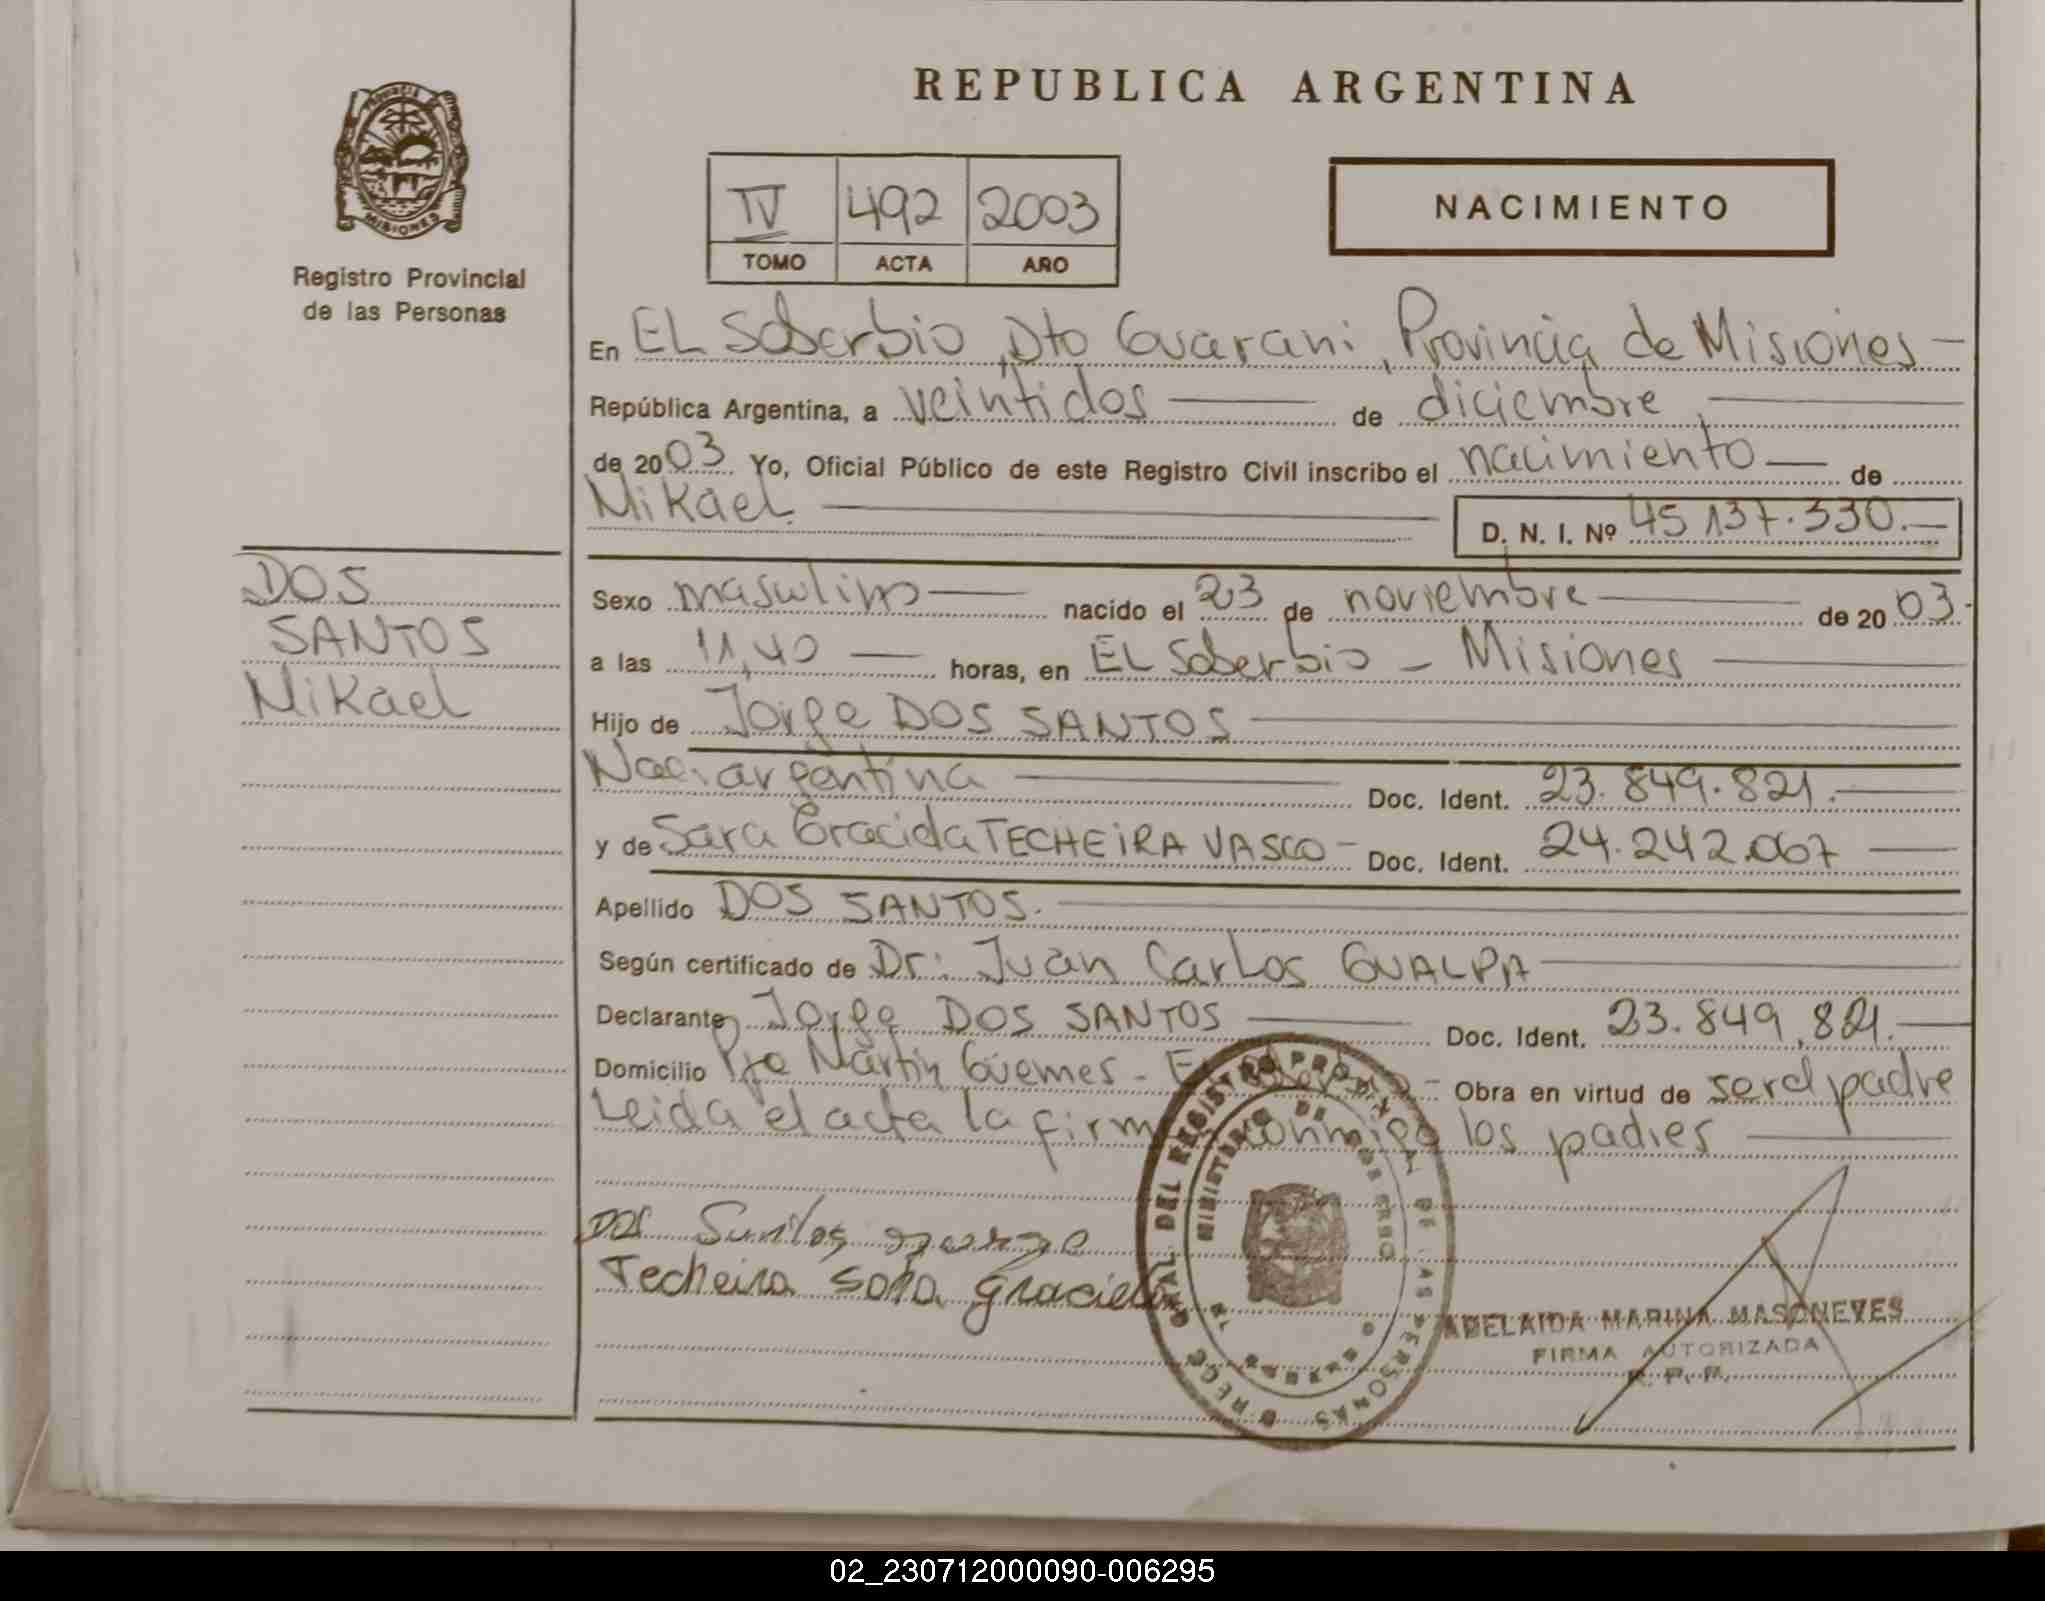 REPUBLICA ARGENTINA
PROVINCIA DE
MISIONES
Registro Provincial
de las Personas
IV 492 2003
TOMO ACTA AÑO
NACIMIENTO
En EL Soberbio, Dto Guarani, Provincia de Misiones —
República Argentina, a veintidos — de diciembre, —
de 2003 Yo, Oficial Público de este Registro Civil inscribo el nacimiento — de
Mikael. — D. N. I. Nº 45 137.330.—
DOS
SANTOS
Mikael
Sexo masculino — nacido el 23 de noviembre — de 2003.
a las 11,40 — horas, en EL Soberbio – Misiones —
Hijo de Jorge DOS SANTOS —
Nac. argentina — Doc. Ident. 23.849.821.—
y de Sara Gracida TECHEIRA VASCO – Doc. Ident. 24.242.067 —
Apellido DOS SANTOS. —
Según certificado de Dr: Juan Carlos GUALPA —
Declarante Jorge DOS SANTOS — Doc. Ident. 23.849.821.—
Domicilio Pje Martin Guemes – El Soberbio – Obra en virtud de ser el padre
Leida el acta la firman conmigo los padres —
DOS Santos
Techeira Sara
ADELAIDA MARINA MASONEVES
FIRMA AUTORIZADA
R. P. P.
DEL REGISTRO PROVINCIAL DE LAS PERSONAS
MINISTERIO DE
02_230712000090-006295